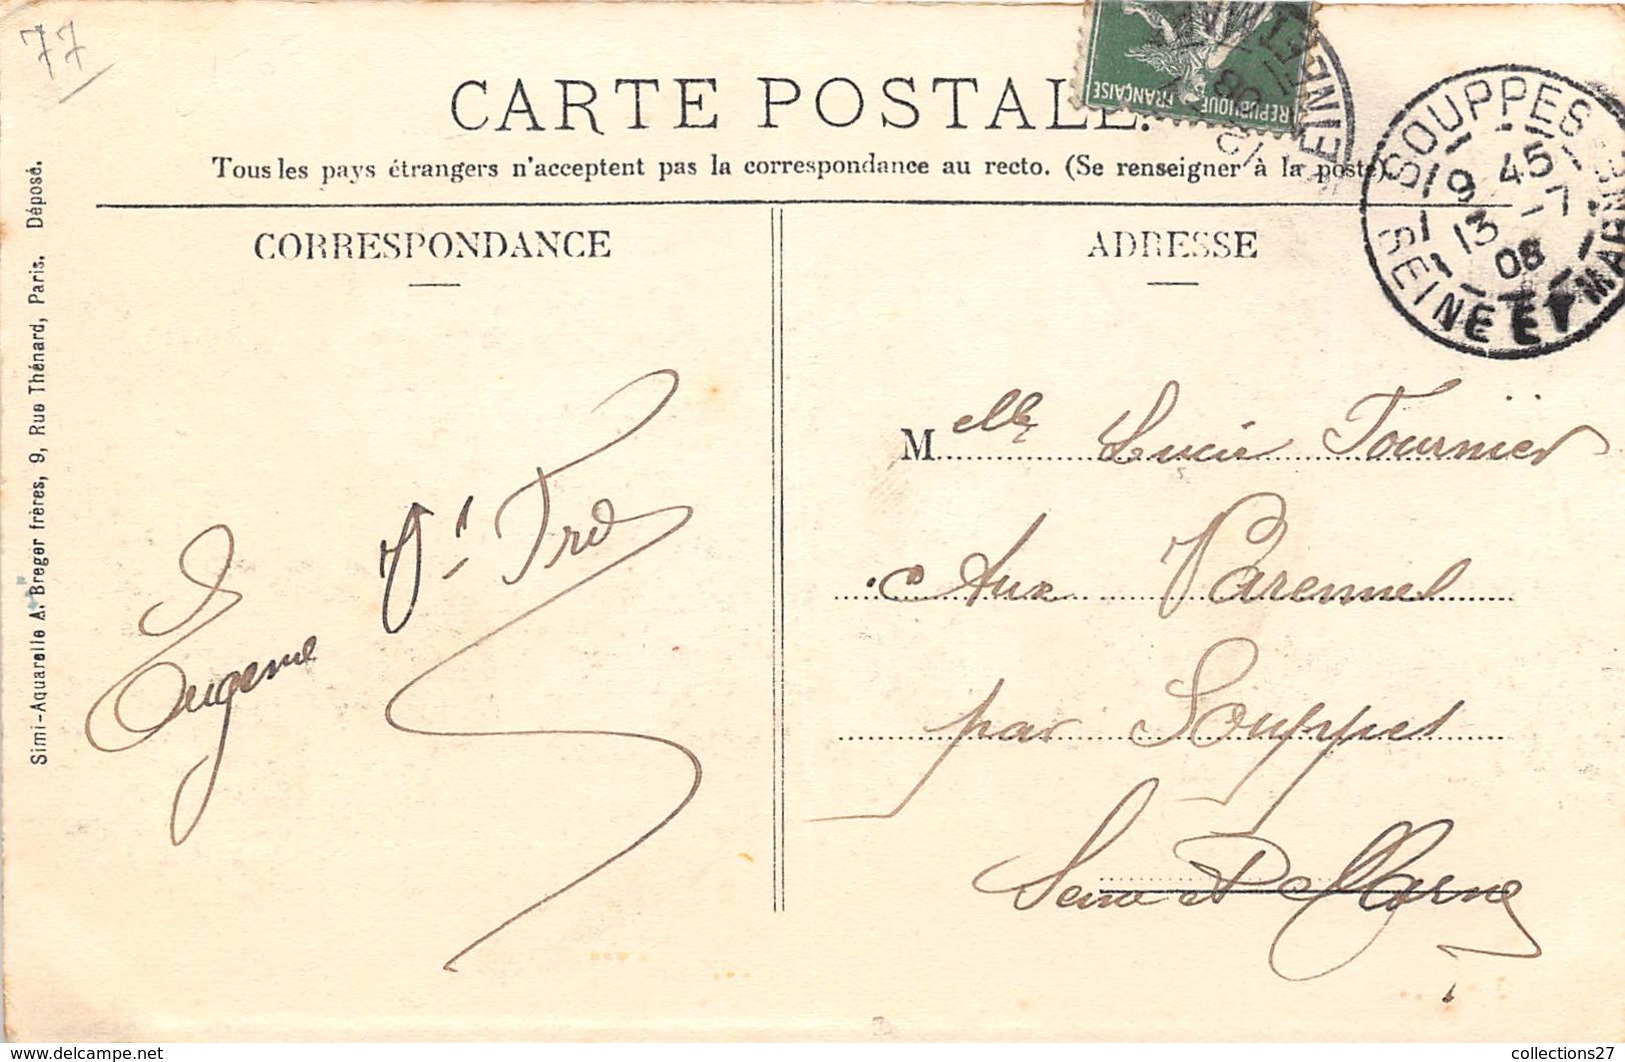 77
CARTE POSTALE.
Tous les pays étrangers n'acceptent pas la correspondance au recto. (Se renseigner à la poste).
REPUBLIQUE FRANÇAISE
SOUPPES
9 45
13 - 7
08
SEINE ET MARNE
CORRESPONDANCE
ADRESSE
Eugenie
Melle Lucie Tournier
Aux Varennes
par Souppes
Seine et Marne
Simi-Aquarelle A. Breger frères, 9, Rue Thénard, Paris. Déposé.
collections27